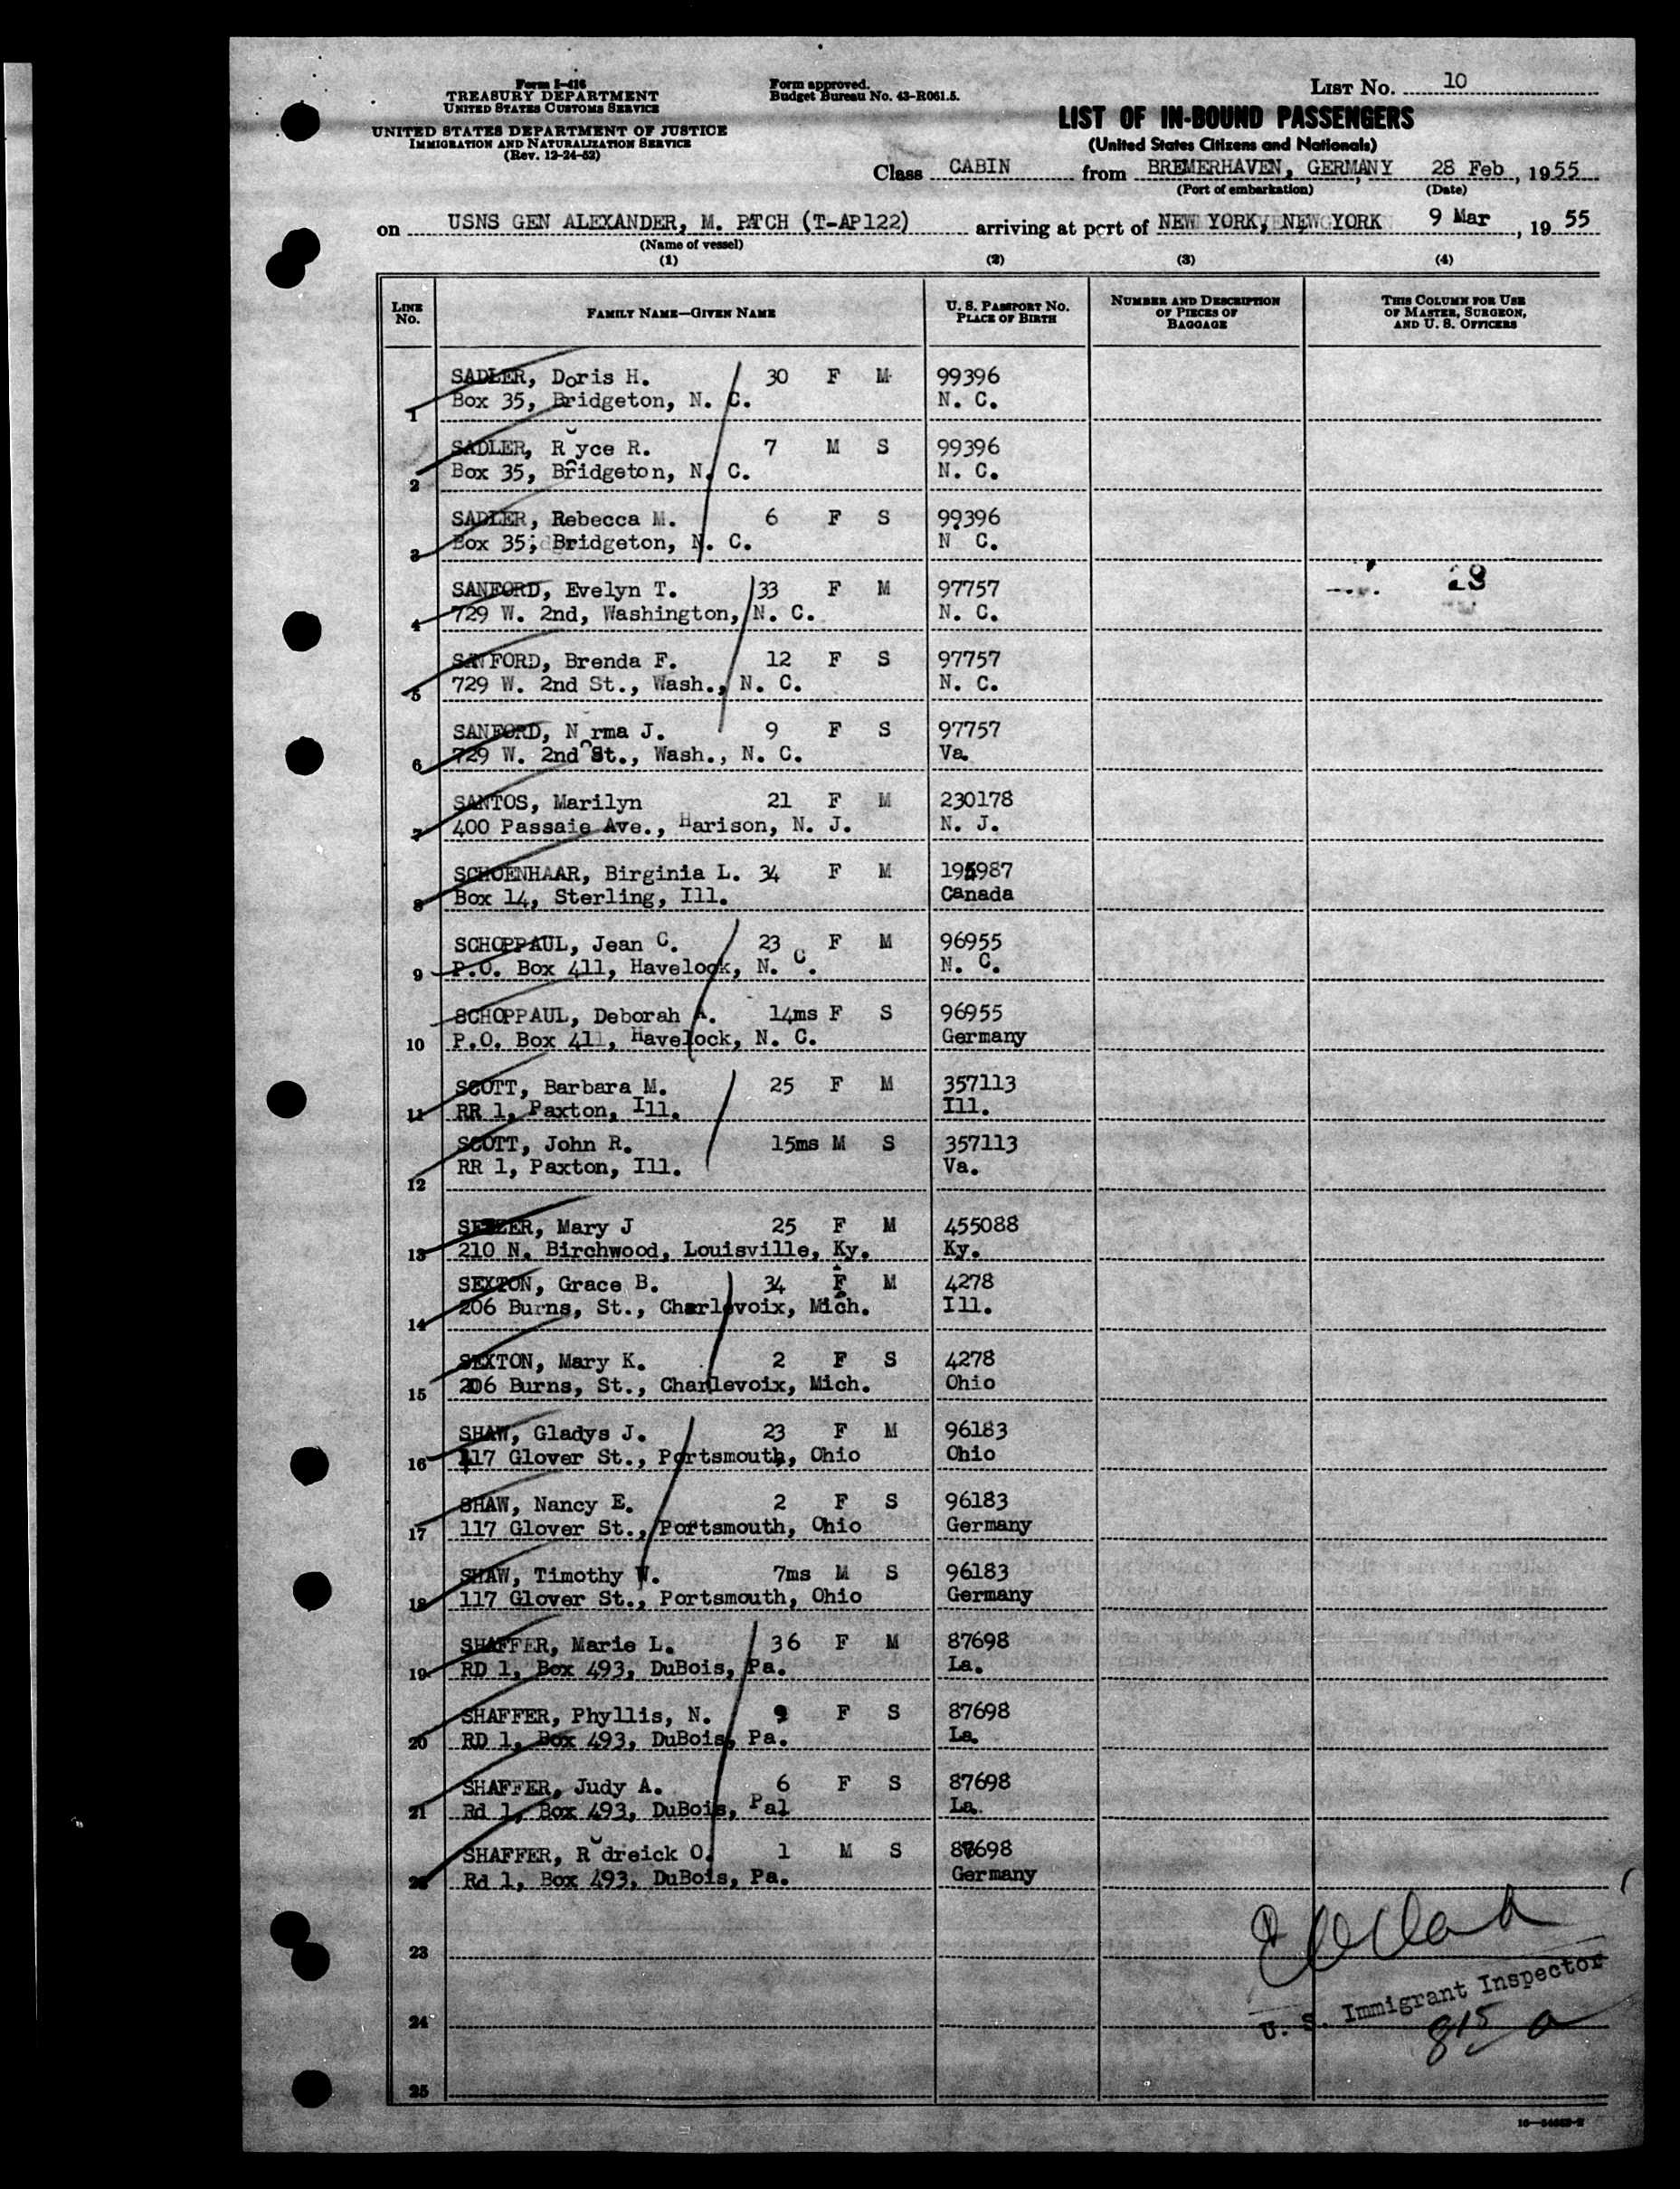 Form I-416
TREASURY DEPARTMENT
UNITED STATES CUSTOMS SERVICE
UNITED STATES DEPARTMENT OF JUSTICE
IMMIGRATION AND NATURALIZATION SERVICE
(Rev. 12-24-52)
Form approved.
Budget Bureau No. 43-R061.5.
LIST No. 10
LIST OF IN-BOUND PASSENGERS
(United States Citizens and Nationals)
Class CABIN from BREMERHAVEN, GERMANY 28 Feb, 1955
(Port of embarkation) (Date)
on USNS GEN ALEXANDER, M. PATCH (T-AP122) arriving at port of NEW YORK, NEW YORK 9 Mar, 1955
(Name of vessel)
(1) (2) (3) (4)
LINE No. FAMILY NAME—GIVEN NAME U. S. PASSPORT No. PLACE OF BIRTH NUMBER AND DESCRIPTION OF PIECES OF BAGGAGE THIS COLUMN FOR USE OF MASTER, SURGEON, AND U. S. OFFICERS
SADLER, Doris H. 30 F M 99396
1 Box 35, Bridgeton, N. C. N. C.
SADLER, R yce R. 7 M S 99396
2 Box 35, Bridgeton, N. C. N. C.
SADLER, Rebecca M. 6 F S 99396
3 Box 35, Bridgeton, N. C. N C.
SANFORD, Evelyn T. 33 F M 97757
4 729 W. 2nd, Washington, N. C. N. C.
SANFORD, Brenda F. 12 F S 97757
5 729 W. 2nd St., Wash., N. C. N. C.
SANFORD, N rma J. 9 F S 97757
6 729 W. 2nd St., Wash., N. C. Va.
SANTOS, Marilyn 21 F M 230178
7 400 Passaie Ave., Harison, N. J. N. J.
SCHOENHAAR, Birginia L. 34 F M 195987
8 Box 14, Sterling, Ill. Canada
SCHOPPAUL, Jean C. 23 F M 96955
9 P.O. Box 411, Havelock, N. C. N. C.
SCHOPPAUL, Deborah A. 14ms F S 96955
10 P.O. Box 411, Havelock, N. C. Germany
SCOTT, Barbara M. 25 F M 357113
11 RR 1, Paxton, Ill. Ill.
SCOTT, John R. 15ms M S 357113
12 RR 1, Paxton, Ill. Va.
Mary J 25 F M 455088
13 210 N. Birchwood, Louisville, Ky. Ky.
SEXTON, Grace B. 34 F M 4278
14 206 Burns, St., Charlevoix, Mich. Ill.
SEXTON, Mary K. 2 F S 4278
15 206 Burns, St., Charlevoix, Mich. Ohio
SHAW, Gladys J. 23 F M 96183
16 117 Glover St., Portsmouth, Ohio Ohio
SHAW, Nancy E. 2 F S 96183
17 117 Glover St., Portsmouth, Ohio Germany
SHAW, Timothy W. 7ms M S 96183
18 117 Glover St., Portsmouth, Ohio Germany
SHAFFER, Marie L. 36 F M 87698
19 RD 1, Box 493, DuBois, Pa. La.
SHAFFER, Phyllis, N. 9 F S 87698
20 RD 1, Box 493, DuBois, Pa. La.
SHAFFER, Judy A. 6 F S 87698
21 Rd 1, Box 493, DuBois, Pal La.
SHAFFER, R dreick O. 1 M S 87698
22 Rd 1, Box 493, DuBois, Pa. Germany
23
24
25
U. S. Immigrant Inspector